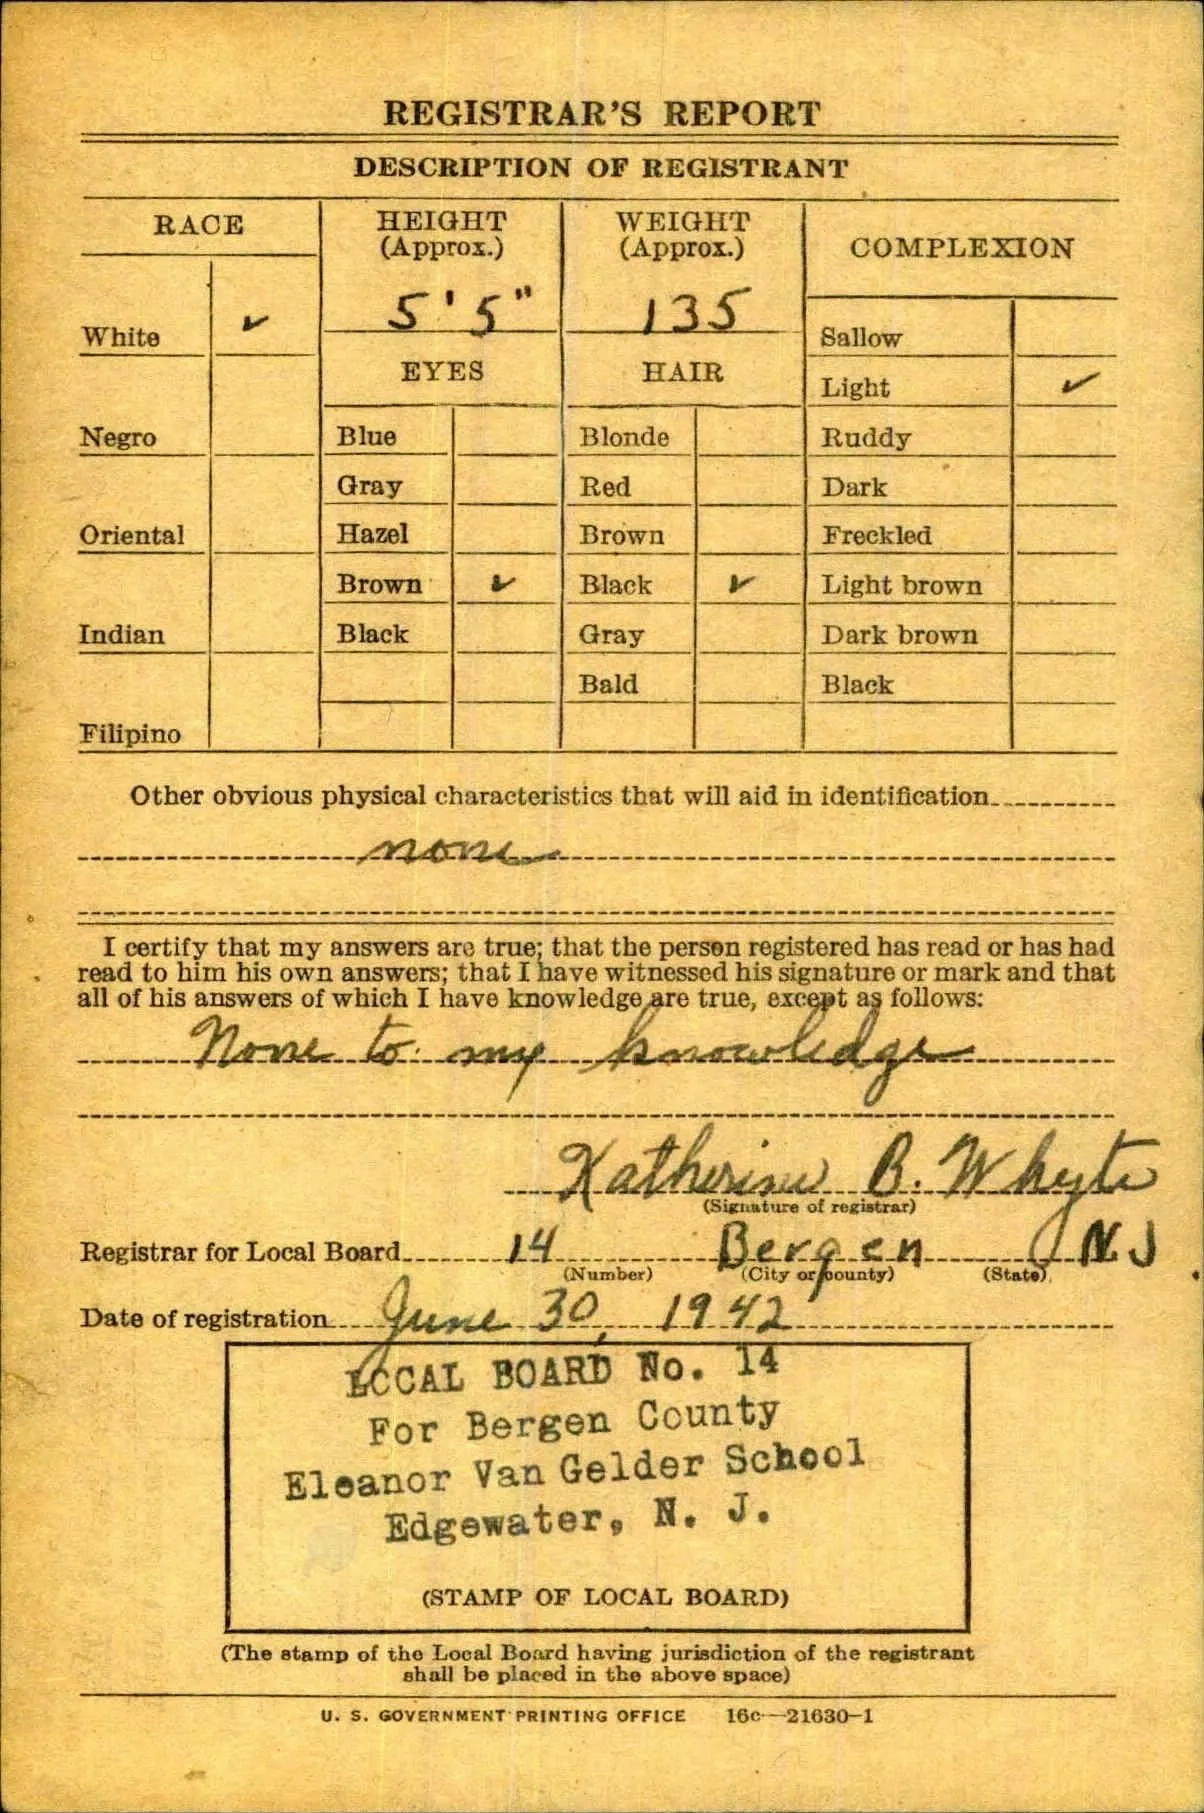 REGISTRAR'S REPORT
DESCRIPTION OF REGISTRANT
RACE
HEIGHT
(Approx.)
WEIGHT
(Approx.)
COMPLEXION
5'5"
135
White ✓
Sallow
EYES
HAIR
Light ✓
Negro
Blue
Blonde
Ruddy
Gray
Red
Dark
Oriental
Hazel
Brown
Freckled
Brown ✓
Black ✓
Light brown
Indian
Black
Gray
Dark brown
Bald
Black
Filipino
Other obvious physical characteristics that will aid in identification
none
I certify that my answers are true; that the person registered has read or has had
read to him his own answers; that I have witnessed his signature or mark and that
all of his answers of which I have knowledge are true, except as follows:
None to my knowledge
Katherine B. Whyte
(Signature of registrar)
Registrar for Local Board 14 Bergen NJ
(Number) (City or county) (State)
Date of registration June 30, 1942
LOCAL BOARD No. 14
For Bergen County
Eleanor Van Gelder School
Edgewater, N. J.
(STAMP OF LOCAL BOARD)
(The stamp of the Local Board having jurisdiction of the registrant
shall be placed in the above space)
U. S. GOVERNMENT PRINTING OFFICE 16c—21630-1